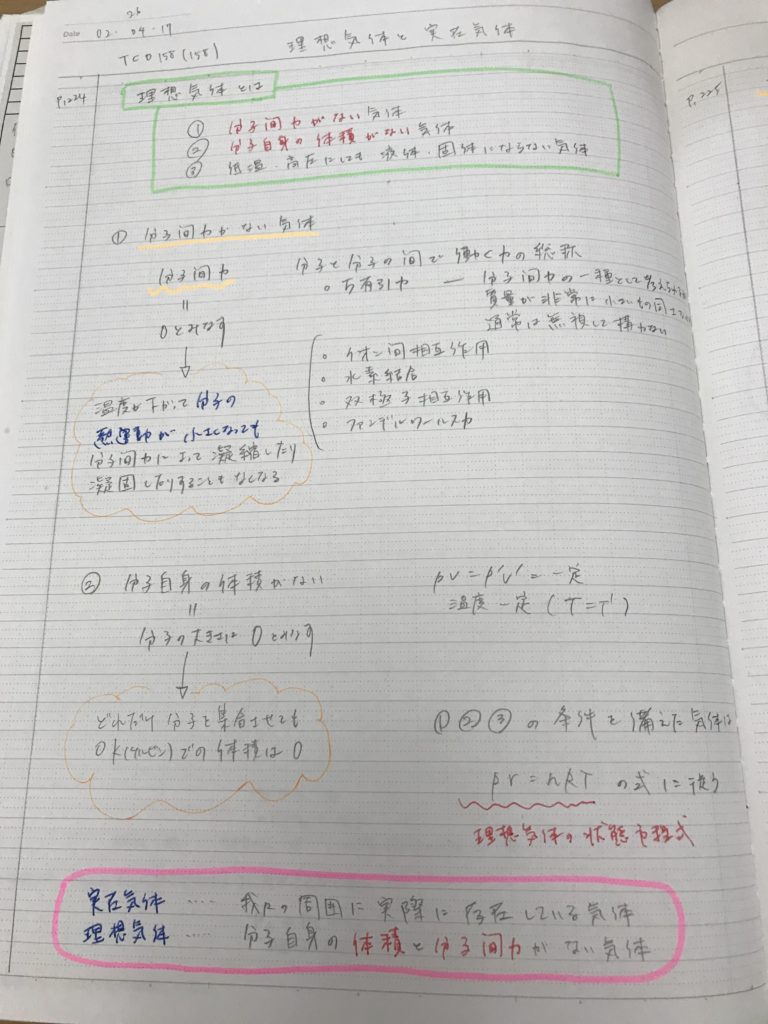 Date 02・04・19
26
TCO158(158) 理想気体と実在気体
P.224
理想気体とは
① 分子間力がない気体
② 分子自身の体積がない気体
③ 低温・高圧にしても液体・固体にならない気体
① 分子間力がない気体
分子間力
分子と分子の間で働く力の総称
○万有引力 ー 分子間力の一種として考えられるが
質量が非常に小さいもの同士
通常は無視して構わない
=
0とみなす
↓
・イオン間相互作用
・水素結合
・双極子相互作用
・ファンデルワールス力
温度が下がって分子の
熱運動が小さくなっても
分子間力によって凝縮したり
凝固したりすることもなくなる
② 分子自身の体積がない
=
分子の大きさは0とみなす
↓
どれだけ分子を集合させても
0K(ケルビン)での体積は0
PV=P'V'=一定
温度一定(T=T')
①②③の条件を備えた気体は
PV=nRTの式に従う
理想気体の状態方程式
実在気体 ‥‥ 我々の周囲に実際に存在している気体
理想気体 ‥‥ 分子自身の体積と分子間力がない気体
P.225